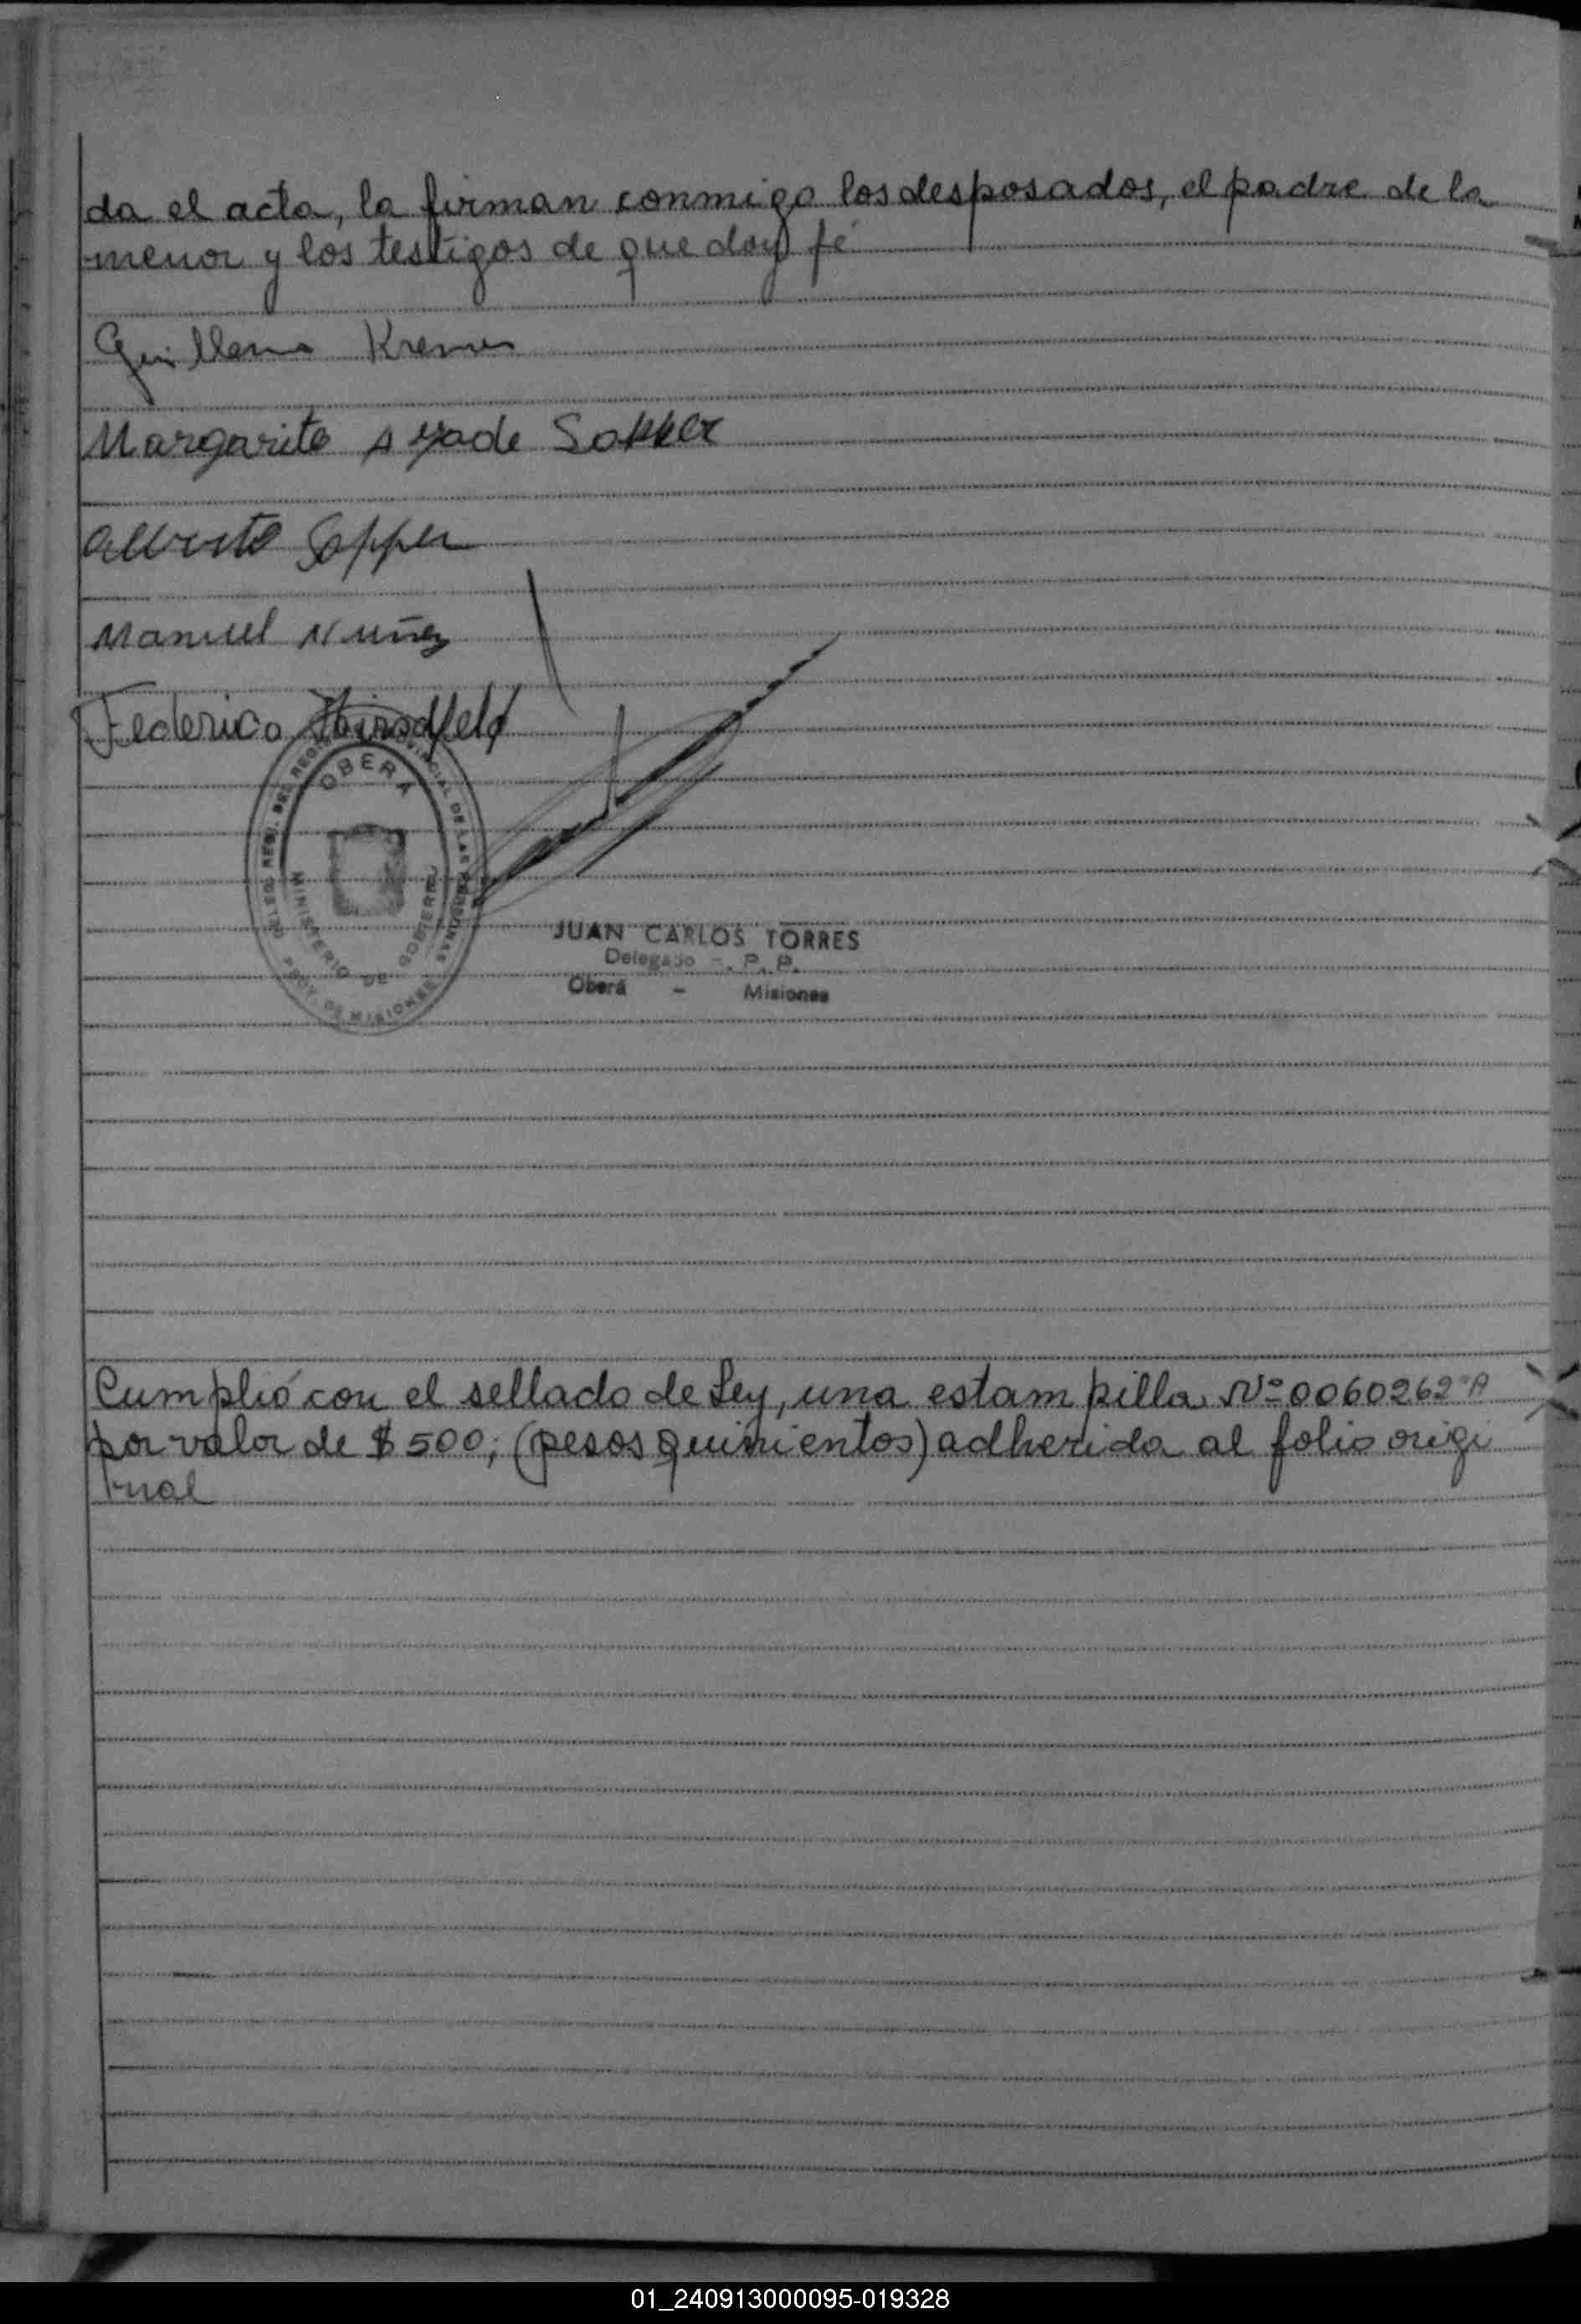 da el acta, la firman conmigo los desposados, el padre de la
menor y los testigos de que doy fé
Guillermo Kremer
Margarita A
Alberto Sapper
Manuel Nuñez
Federico
OBERA
MINISTERIO DE GOBIERNO
PROV. DE MISIONES
JUAN CARLOS TORRES
Delegado - P. P.
Oberá - Misiones
Cumplió con el sellado de Ley, una estampilla Nº 0060262 "A
por valor de $ 500; (pesos quinientos) adherida al folio origi
nal
01_240913000095-019328